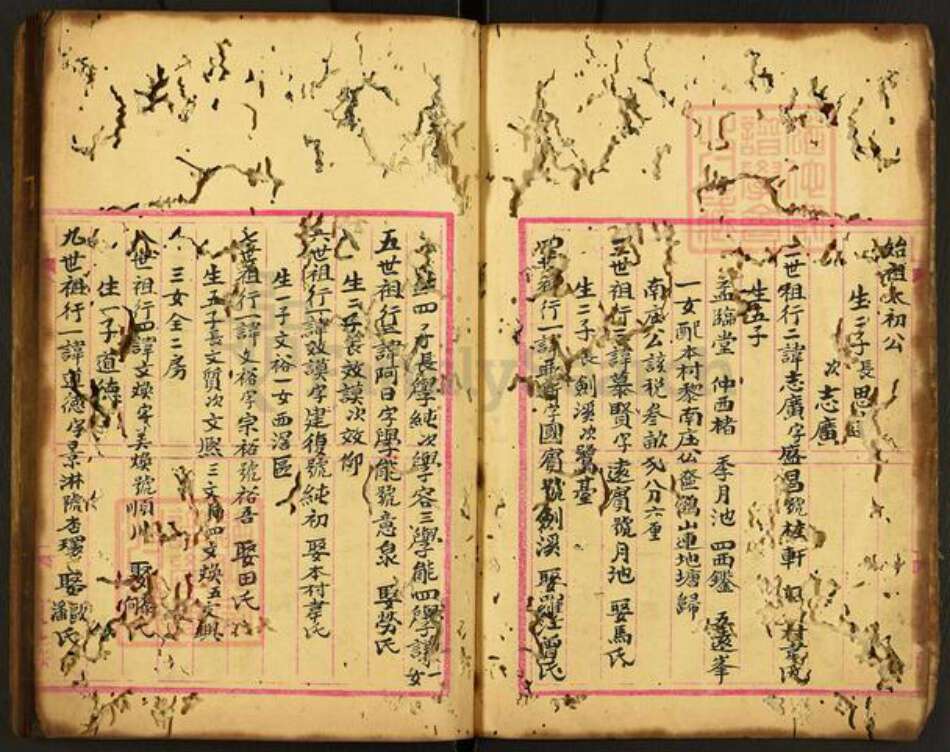 始祖太初公
生二子長思
次志廣
二世祖行二諱志廣字盛昌號梅軒 村韋氏
生五子
孟臨堂 仲西楮 季月池 四西鑑 五遠峯
一女配本村黎南庄公奩鷄山連地塘歸
南庄公該稅叁畝 分六厘
三世祖行三諱慕賢字遠賓號月池 娶馬氏
生二子長劍溪次鷺臺
四世祖行一諱 字國賓號劍溪 娶羅曾氏
生四子長學純次學容三學能四學謙一女
五世祖行三諱阿日字學能號意泉 娶勞氏
生二子長效謨次效仰
六世祖行一諱效謨字建復號純初 娶本村韋氏
生一子文裕一女西滘區
七世祖行一諱文裕字宗裕號裕吾 娶田氏
生五子長文質次文熙三文 四文煥五文興
三女全二房
八世祖行四諱文煥字美煥號順川 娶 何氏
生一子道德
九世祖行一諱道德字景淋號杏環 娶歐潘氏